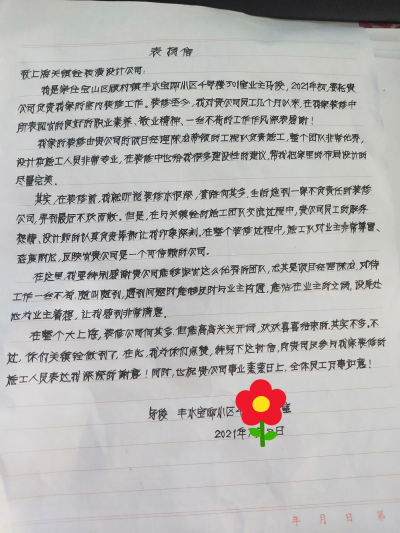 表扬信
致上海关镇铨装潢设计公司:
我是家住宝山区顾村镇丰水宝邸小区4号楼301室业主马俊, 2021年初, 委托贵
公司负责我家的室内装修工作。装修至今, 我对贵公司员工几个月以来, 在我家装修中
所表现出的良好的职业素养、敬业精神、一丝不苟的工作作风深表感谢!
我家的装修由贵公司的项目经理陈龙带领的工程队负责施工, 整个团队非常优秀,
设计和施工人员非常专业, 在装修中也给我很多建设性的建议, 帮我把家里的布局设计的
尽善完美。
其实, 在装修前, 我就听说装修水很深, 套路何其多, 生怕遇到一家不负责任的装修
公司, 弄到最后不欢而散。但是, 在与关镇铨的施工团队交流过程中, 贵公司员工的服务
热情、设计师的认真负责等都让我印象深刻。在整个装修过程中, 施工队对业主非常尊重、
反映出贵公司是一个可信赖的公司。
在这里, 我要特别感谢贵公司能够派出这么优秀的团队, 尤其是项目经理陈龙, 对待
工作一丝不苟, 随叫随到, 遇到问题时能够及时与业主沟通, 能站在业主的立场, 设身处
地为业主着想, 让我感到非常满意。
在整个大上海, 装修公司何其多, 但能高高兴兴开始, 欢欢喜喜结束的, 其实不多。不
过, 你们关镇铨做到了, 在此, 我为你们点赞, 特写下这封信, 向贵司及参与我家装修的
施工人员表达我深深的谢意! 同时, 也祝贵公司事业蒸蒸日上, 全体员工万事如意!
马俊 丰水宝邸小区4
2021年 日
年 月 日 第